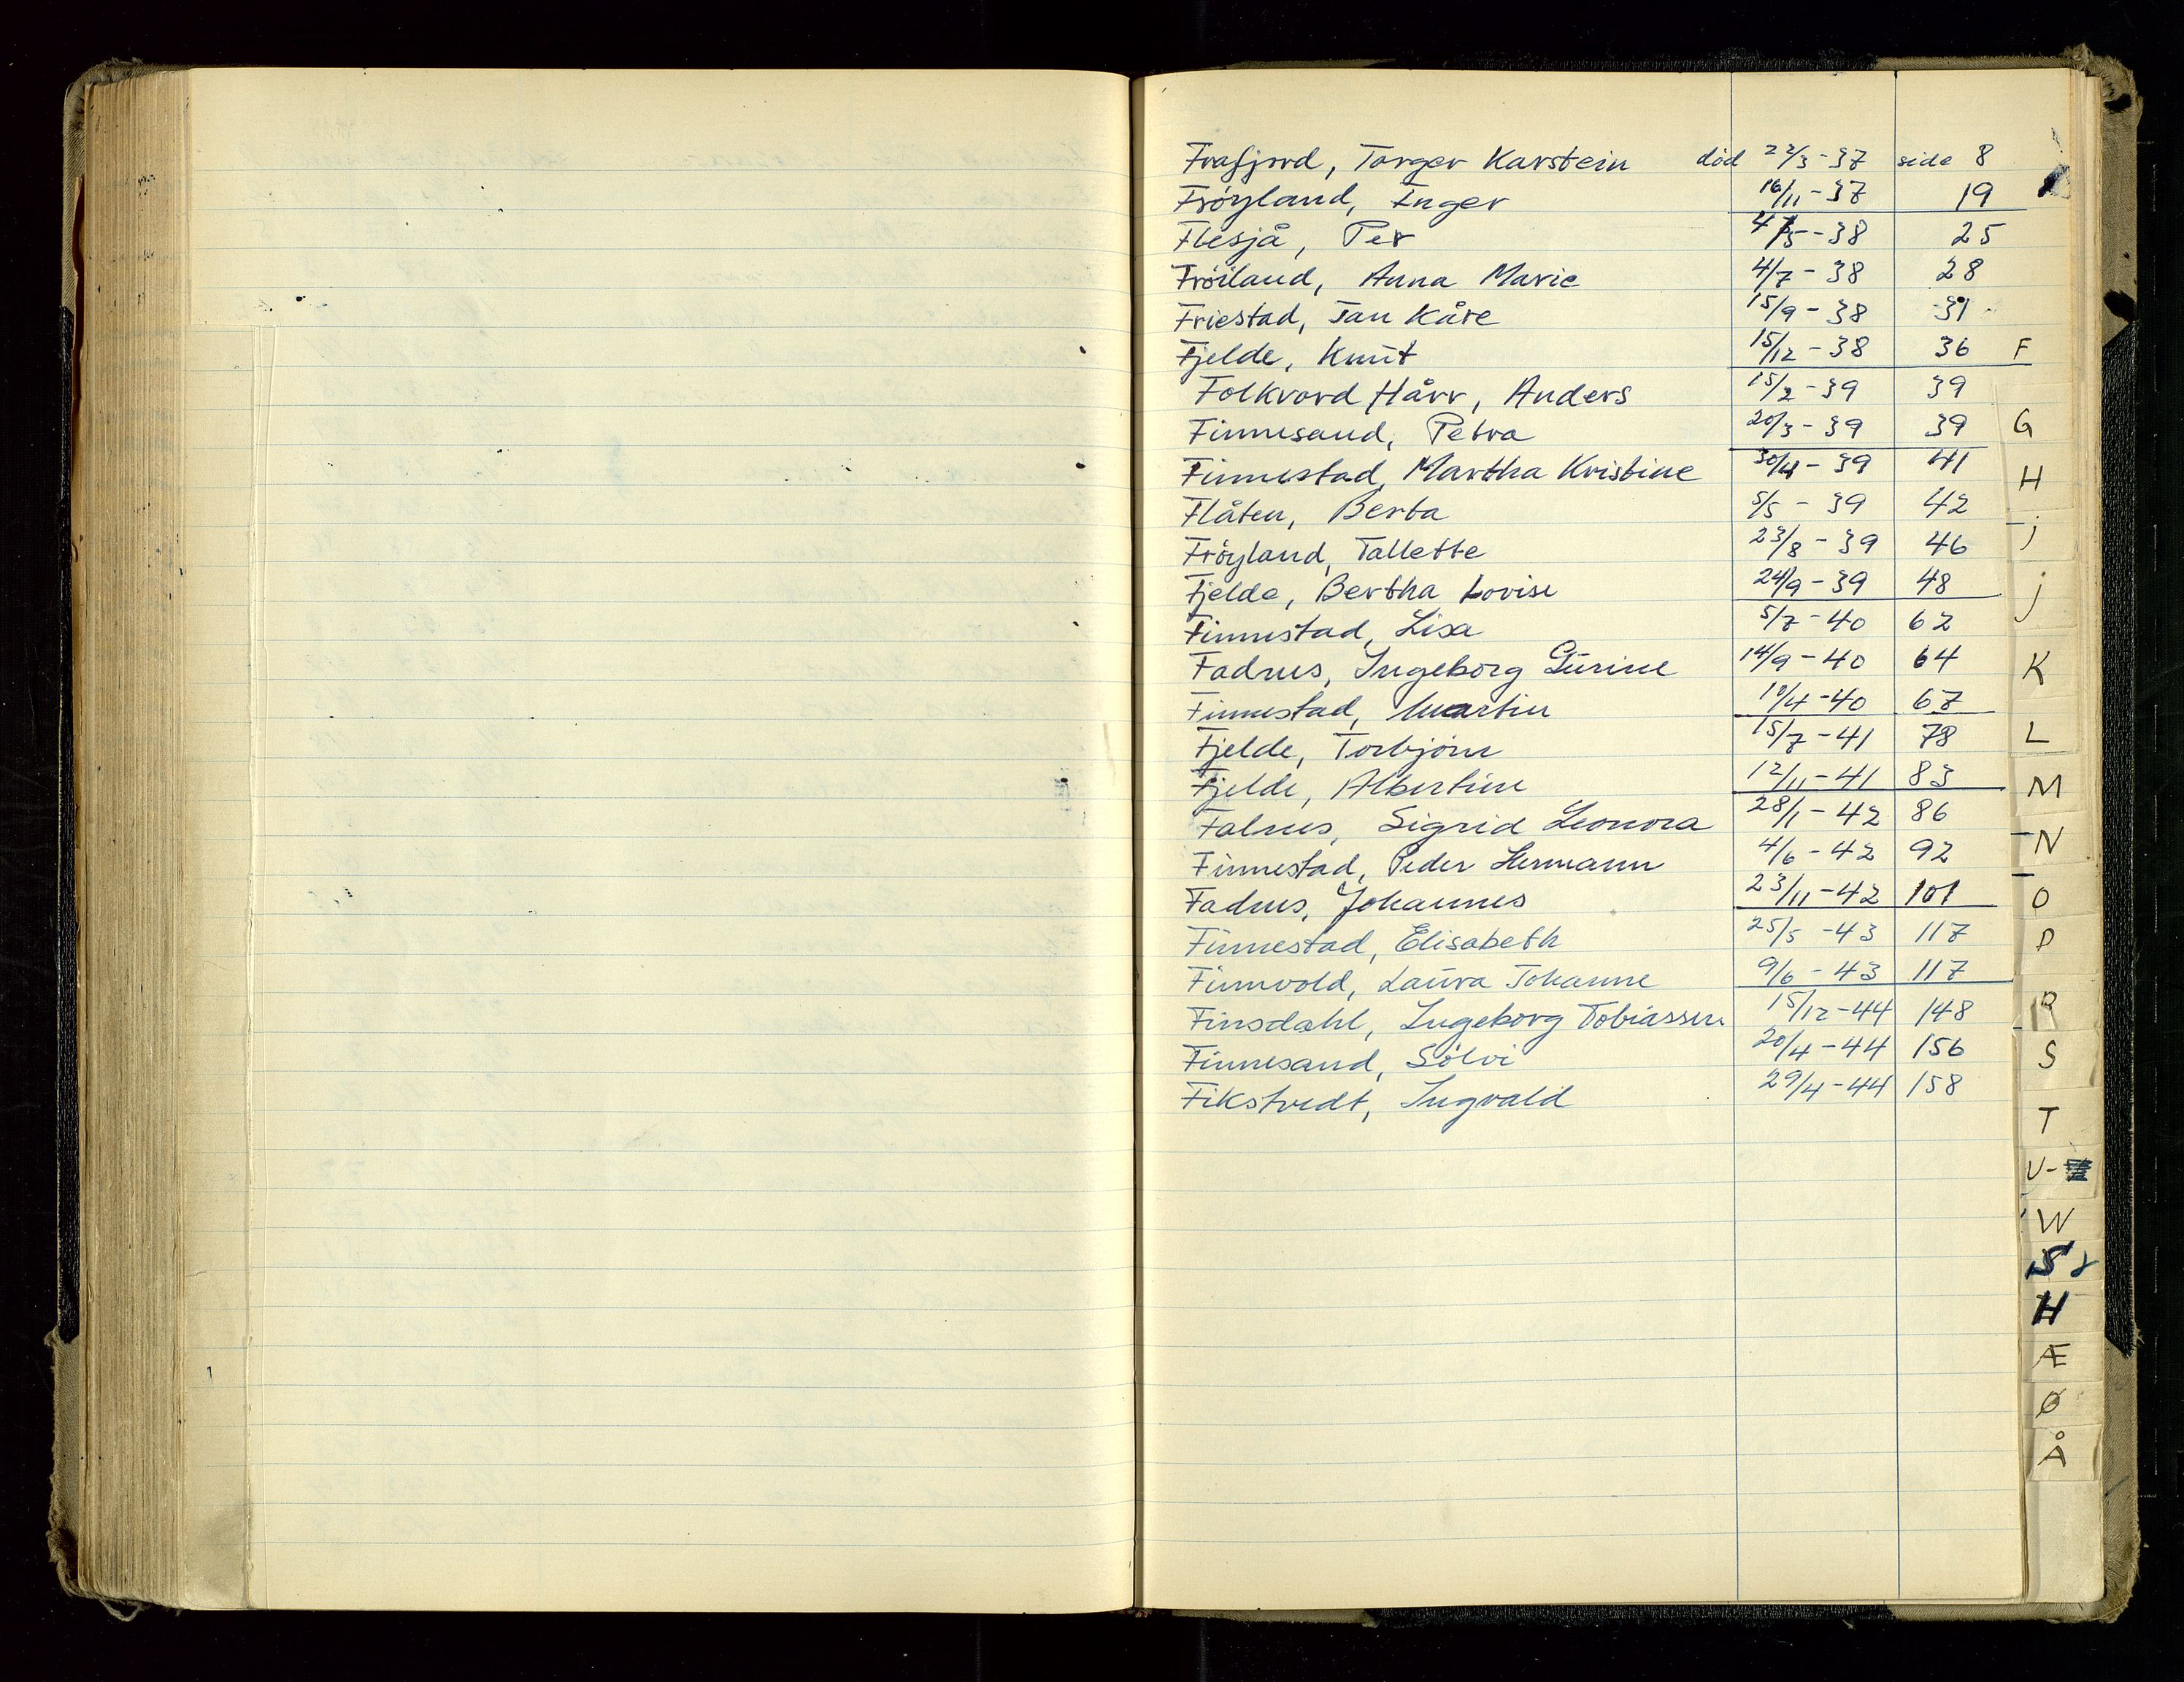 Frafjord, Torger Karstein død 22/3-37 side 8
Frøyland, Inger 16/11-37 19
Flesjå, Per 4/5-38 25
Frøiland, Anna Marie 4/7-38 28
Friestad, Jan Kåre 15/9-38 31
Fjelde, Knut 15/12-38 36 F
Folkvord Hårr, Anders 15/2-39 39
Finnesand, Petra 20/3-39 39 G
Finnestad, Martha Kristine 30/4-39 41 H
Flåten, Berta 5/5-39 42
Frøyland, Tallette 23/8-39 46 i
Fjelde, Bertha Lovise 24/9-39 48 j
Finnestad, Lisa 5/7-40 62
Fadnes, Ingeborg Gurine 14/9-40 64 K
Finnestad, Martin 10/4-40 67
Fjelde, Torbjørn 15/7-41 78 L
Fjelde, Albertine 12/11-41 83 M
Falnes, Sigrid Leonora 28/1-42 86
Finnestad, Peder Hermann 4/6-42 92 N
Fadnes, Johannes 23/11-42 101 O
Finnestad, Elisabeth 25/5-43 117 P
Finnvold, Laura Johanne 9/6-43 117
Finsdahl, Ingeborg Tobiassen 15/12-44 148 R
Finnesand, Sölvi 20/4-44 156 S
Fikstvedt, Ingvald 29/4-44 158
T
U-
W
S
H
Æ
Ø
Å